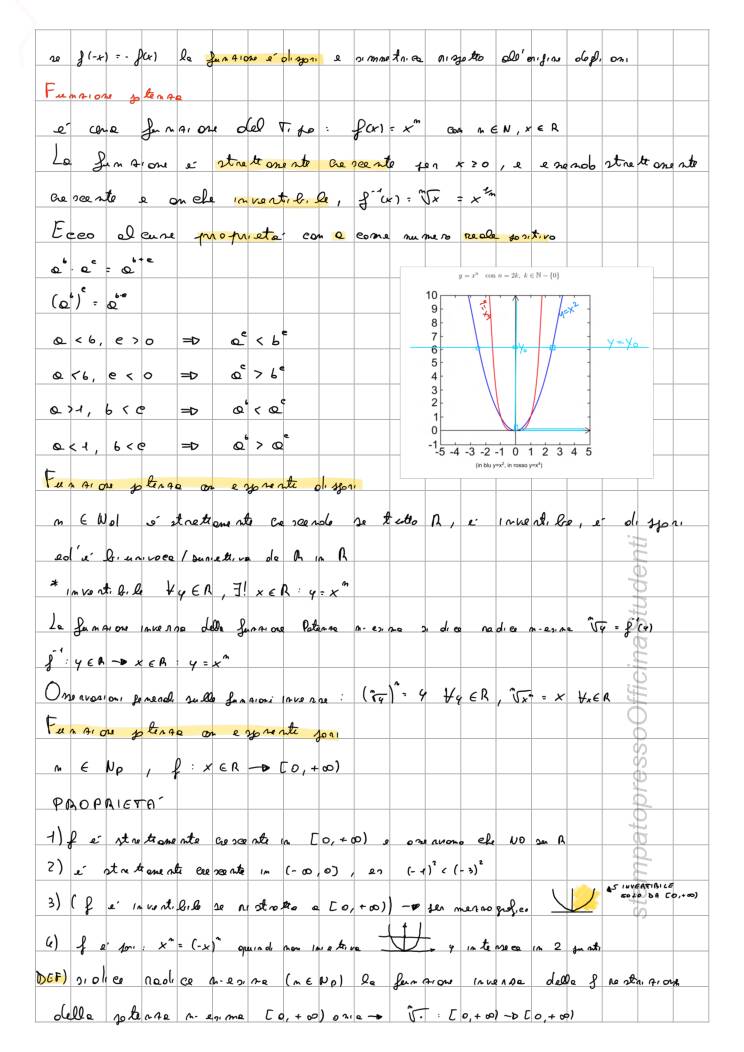 se f(-x) = - f(x) la funzione è dispari e simmetrica rispetto all'origine degli assi
Funzione potenza
è una funzione del tipo: f(x) = xⁿ con n ∈ N, x ∈ R
La funzione è strettamente crescente per x ≥ 0, e essendo strettamente
crescente e anche invertibile, f⁻¹(x) = ⁿ√x = x^(1/n)
Ecco alcune proprietà con a come numero reale positivo
a^b · a^c = a^(b+c)
(a^b)^c = a^(b·c)
a < b, c > 0 ⇒ a^c < b^c
a < b, c < 0 ⇒ a^c > b^c
a > 1, b < c ⇒ a^b < a^c
a < 1, b < c ⇒ a^b > a^c
y = xⁿ con n = 2k, k ∈ N − {0}
10
9
8
7
6
5
4
3
2
1
0
-1
-5 -4 -3 -2 -1 0 1 2 3 4 5
y=x²
y₀
y=y₀
(in blu y=x², in rosso y=x⁴)
Funzione potenza con esponenti dispari
n ∈ Nd è strettamente crescendo se tutto R, è invertibile, è dispari
ed è biunivoca/suriettiva da R in R
* invertibile ∀y ∈ R, ∃! x ∈ R : y = xⁿ
La funzione inversa della funzione Potenza n-esima si dice radice n-esima ⁿ√y = f⁻¹(y)
f⁻¹ : y ∈ R → x ∈ R : y = xⁿ
Osservazioni generali sulle funzioni inverse : (ⁿ√y)ⁿ = y ∀y ∈ R, ⁿ√xⁿ = x ∀x ∈ R
Funzione potenza con esponenti pari
n ∈ Np , f : x ∈ R → [0, +∞)
PROPRIETÀ
1) f è strettamente crescente in [0, +∞) e osserviamo che NO su R
2) è strettamente crescente in (-∞, 0] , es (-1)² < (-3)²
3) (f è invertibile se ristretto a [0, +∞)) → per mezzo grafico
È INVERTIBILE
SOLO DA [0,+∞)
4) f è pari : xⁿ = (-x)ⁿ quindi non iniettiva y interseca in 2 punti
DEF) si dice radice n-esima (n ∈ Np) la funzione inversa della f restrizione
della potenza n-esima [0, +∞) ossia → ⁿ√· : [0, +∞) → [0, +∞)
stampatopressoOfficinaStudenti